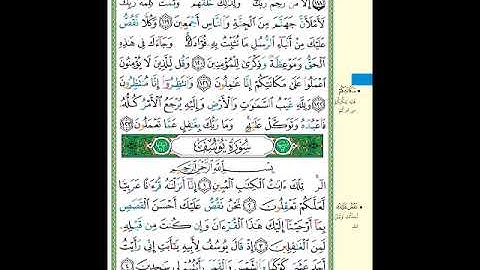 إِلَّا مَن رَّحِمَ رَبُّكَ ۚ وَلِذَٰلِكَ خَلَقَهُمْ ۗ وَتَمَّتْ كَلِمَةُ رَبِّكَ
لَأَمْلَأَنَّ جَهَنَّمَ مِنَ الْجِنَّةِ وَالنَّاسِ أَجْمَعِينَ ﴿١١٩﴾ وَكُلًّا نَّقُصُّ
عَلَيْكَ مِنْ أَنبَاءِ الرُّسُلِ مَا نُثَبِّتُ بِهِ فُؤَادَكَ ۚ وَجَاءَكَ فِي هَٰذِهِ
الْحَقُّ وَمَوْعِظَةٌ وَذِكْرَىٰ لِلْمُؤْمِنِينَ ﴿١٢٠﴾ وَقُل لِّلَّذِينَ لَا يُؤْمِنُونَ
اعْمَلُوا عَلَىٰ مَكَانَتِكُمْ إِنَّا عَامِلُونَ ﴿١٢١﴾ وَانتَظِرُوا إِنَّا مُنتَظِرُونَ
﴿١٢٢﴾ وَلِلَّهِ غَيْبُ السَّمَاوَاتِ وَالْأَرْضِ وَإِلَيْهِ يُرْجَعُ الْأَمْرُ كُلُّهُ
فَاعْبُدْهُ وَتَوَكَّلْ عَلَيْهِ ۚ وَمَا رَبُّكَ بِغَافِلٍ عَمَّا تَعْمَلُونَ ﴿١٢٣﴾
سُورَةُ يُوسُفَ
بِسْمِ اللَّهِ الرَّحْمَٰنِ الرَّحِيمِ
الر ۚ تِلْكَ آيَاتُ الْكِتَابِ الْمُبِينِ ﴿١﴾ إِنَّا أَنزَلْنَاهُ قُرْآنًا عَرَبِيًّا
لَّعَلَّكُمْ تَعْقِلُونَ ﴿٢﴾ نَحْنُ نَقُصُّ عَلَيْكَ أَحْسَنَ الْقَصَصِ
بِمَا أَوْحَيْنَا إِلَيْكَ هَٰذَا الْقُرْآنَ وَإِن كُنتَ مِن قَبْلِهِ
لَمِنَ الْغَافِلِينَ ﴿٣﴾ إِذْ قَالَ يُوسُفُ لِأَبِيهِ يَا أَبَتِ إِنِّي رَأَيْتُ
أَحَدَ عَشَرَ كَوْكَبًا وَالشَّمْسَ وَالْقَمَرَ رَأَيْتُهُمْ لِي سَاجِدِينَ ﴿٤﴾